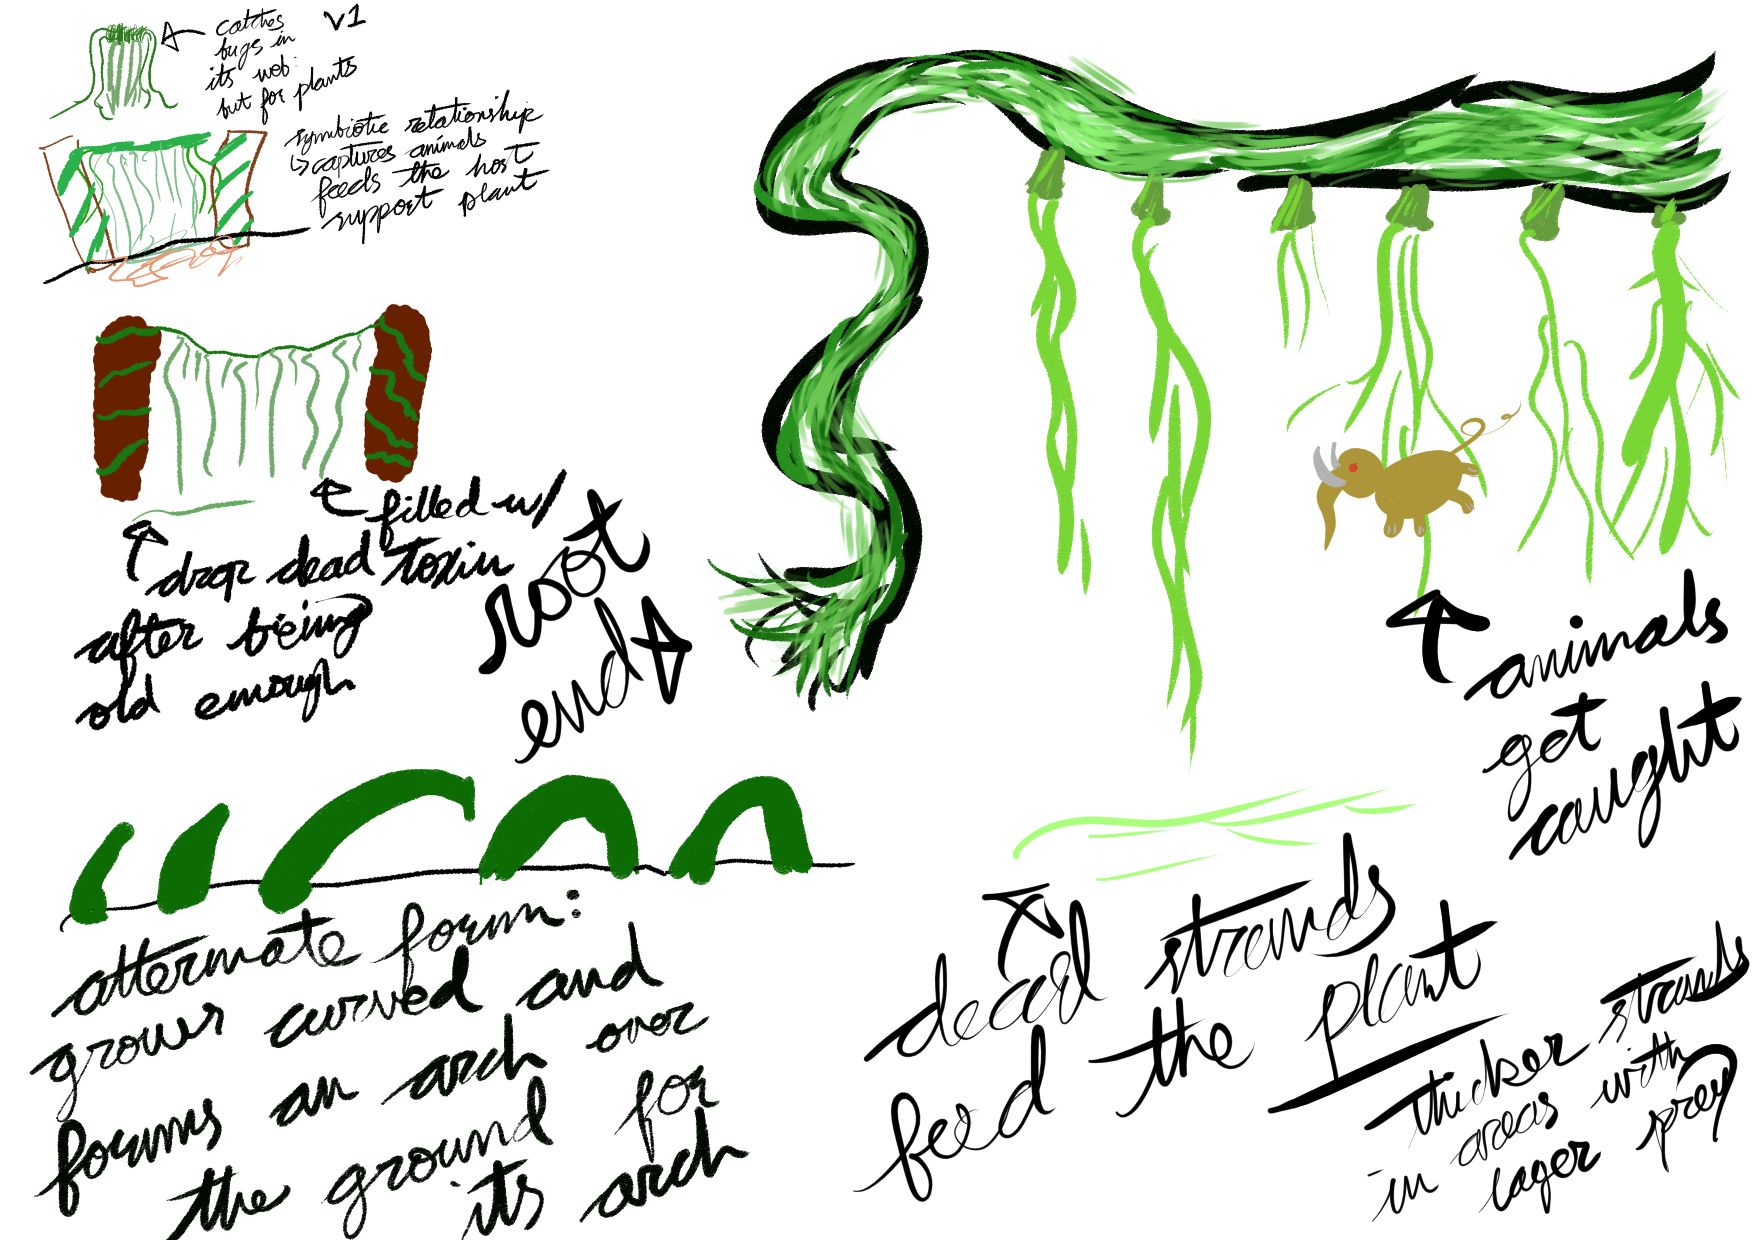 v1
catches
bugs in
its web.
but for plants
symbiotic relationship
↳ captures animals
feeds the host
support plant
filled w/
toxin
drop dead
after being
old enough
root
end
animals
get
caught
alternate form:
grows curved and
forms an arch over
the ground for
its arch
dead strands
feed the plant
thicker strands
in areas with
lager prey